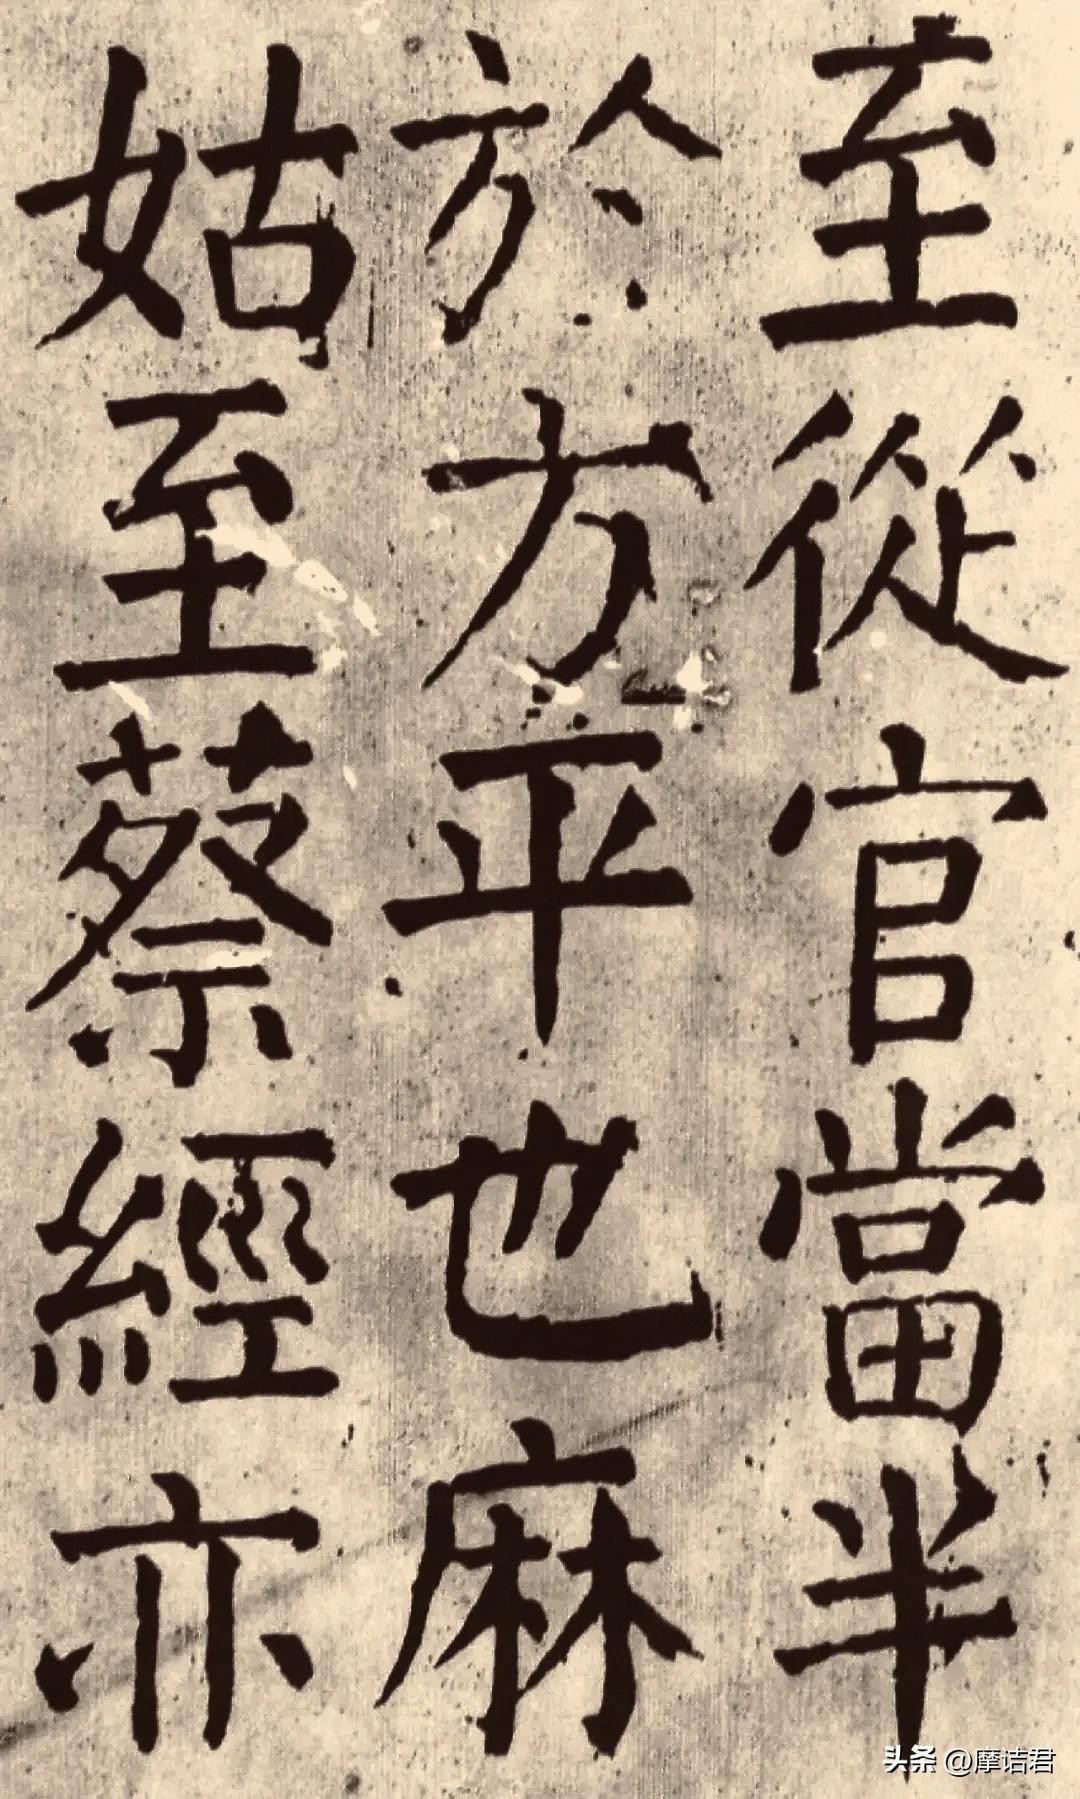 至從官當半
於方平也麻
姑至蔡經亦
头条 @摩诘君